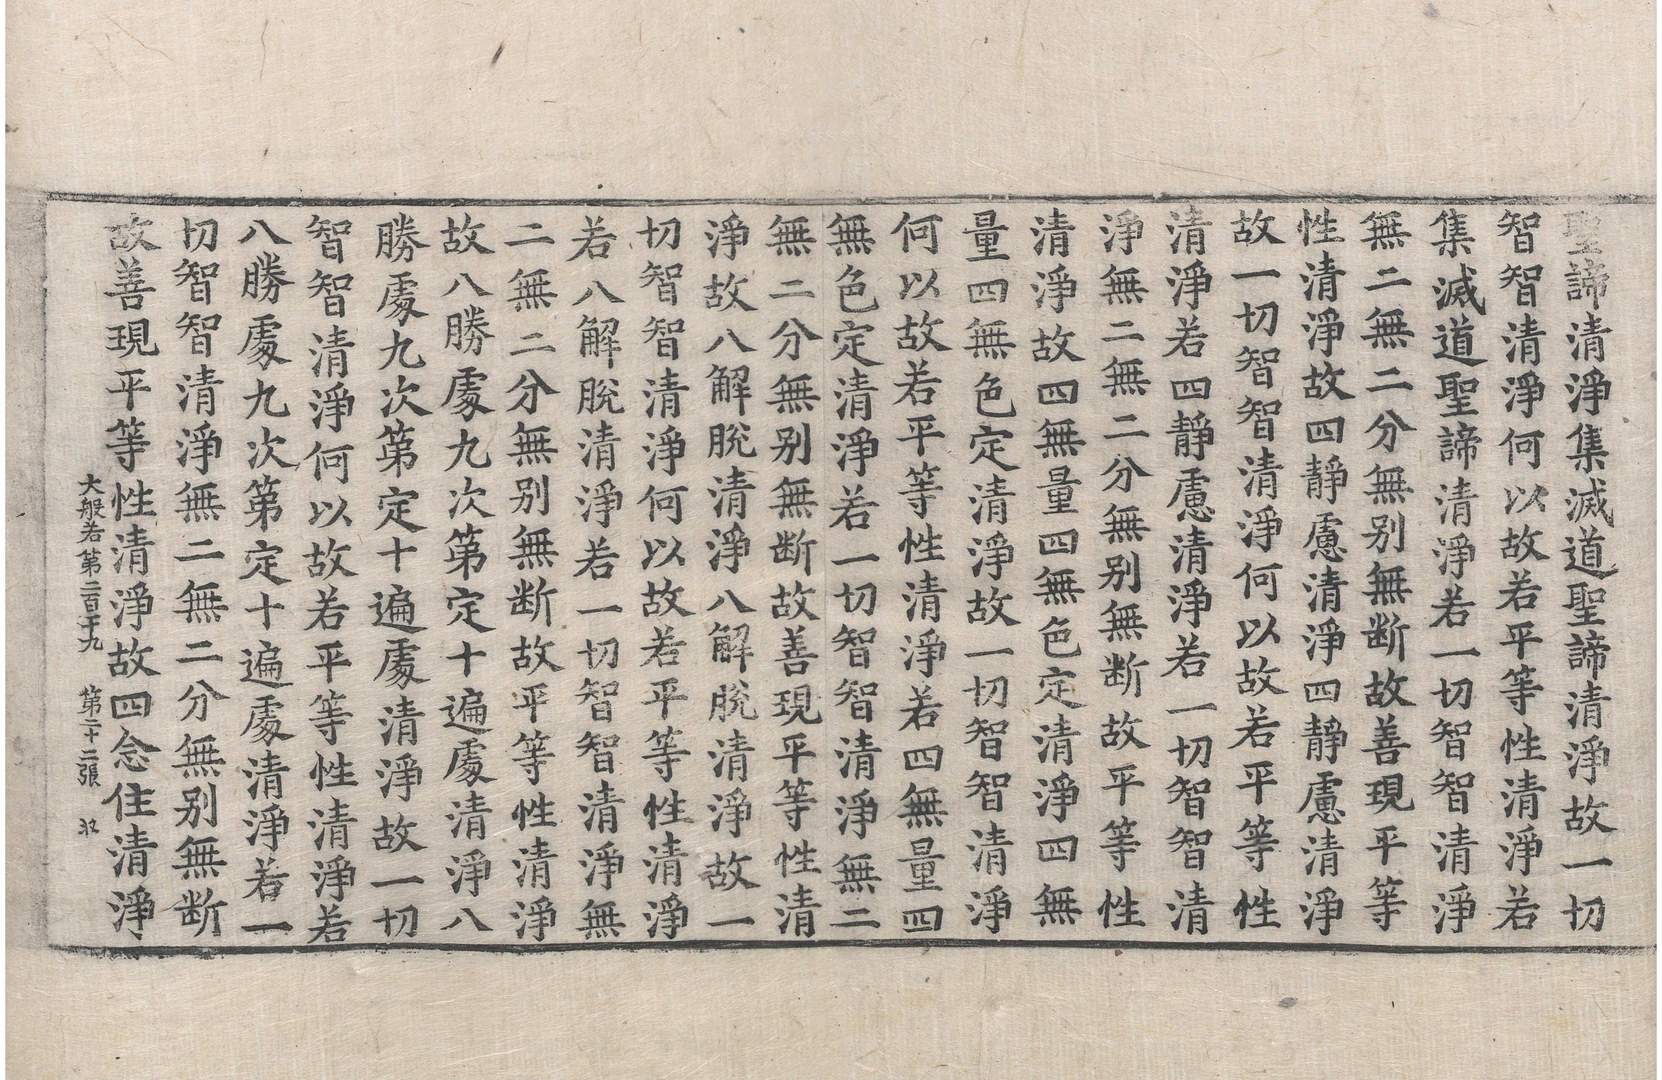 聖諦清淨集滅道聖諦清淨故一切
智智清淨何以故若平等性清淨若
集滅道聖諦清淨若一切智智清淨
無二無二分無别無断故善現平等
性清淨故四靜慮清淨四靜慮清淨
故一切智智清淨何以故若平等性
清淨若四靜慮清淨若一切智智清
淨無二無二分無别無断故平等性
清淨故四無量四無色定清淨四無
量四無色定清淨故一切智智清淨
何以故若平等性清淨若四無量四
無色定清淨若一切智智清淨無二
無二分無别無断故善現平等性清
淨故八解脫清淨八解脫清淨故一
切智智清淨何以故若平等性清淨
若八解脫清淨若一切智智清淨無
二無二分無别無断故平等性清淨
故八勝處九次第定十遍處清淨八
勝處九次第定十遍處清淨故一切
智智清淨何以故若平等性清淨若
八勝處九次第定十遍處清淨若一
切智智清淨無二無二分無别無断
故善現平等性清淨故四念住清淨
大般若第二百五十九 第二十二張